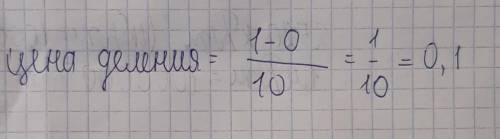 цена деления = (1-0)/10 = 1/10 = 0,1